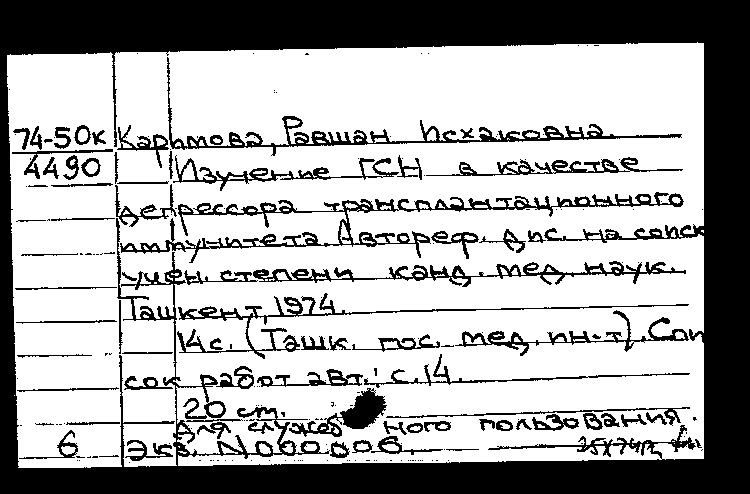 74-50к Каримова, Равшан Исхаковна.
4490 Изучение ГСН в качестве
депрессора трансплантационного
иммунитета. Автореф. дис. на соиск
учен. степени канд. мед. наук.
Ташкент, 1974.
14 с. (Ташк. гос. мед. ин-т). Спи
сок работ авт.: с. 14.
20 см.
Для служеб ного пользования.
6 Экз. N 000006.